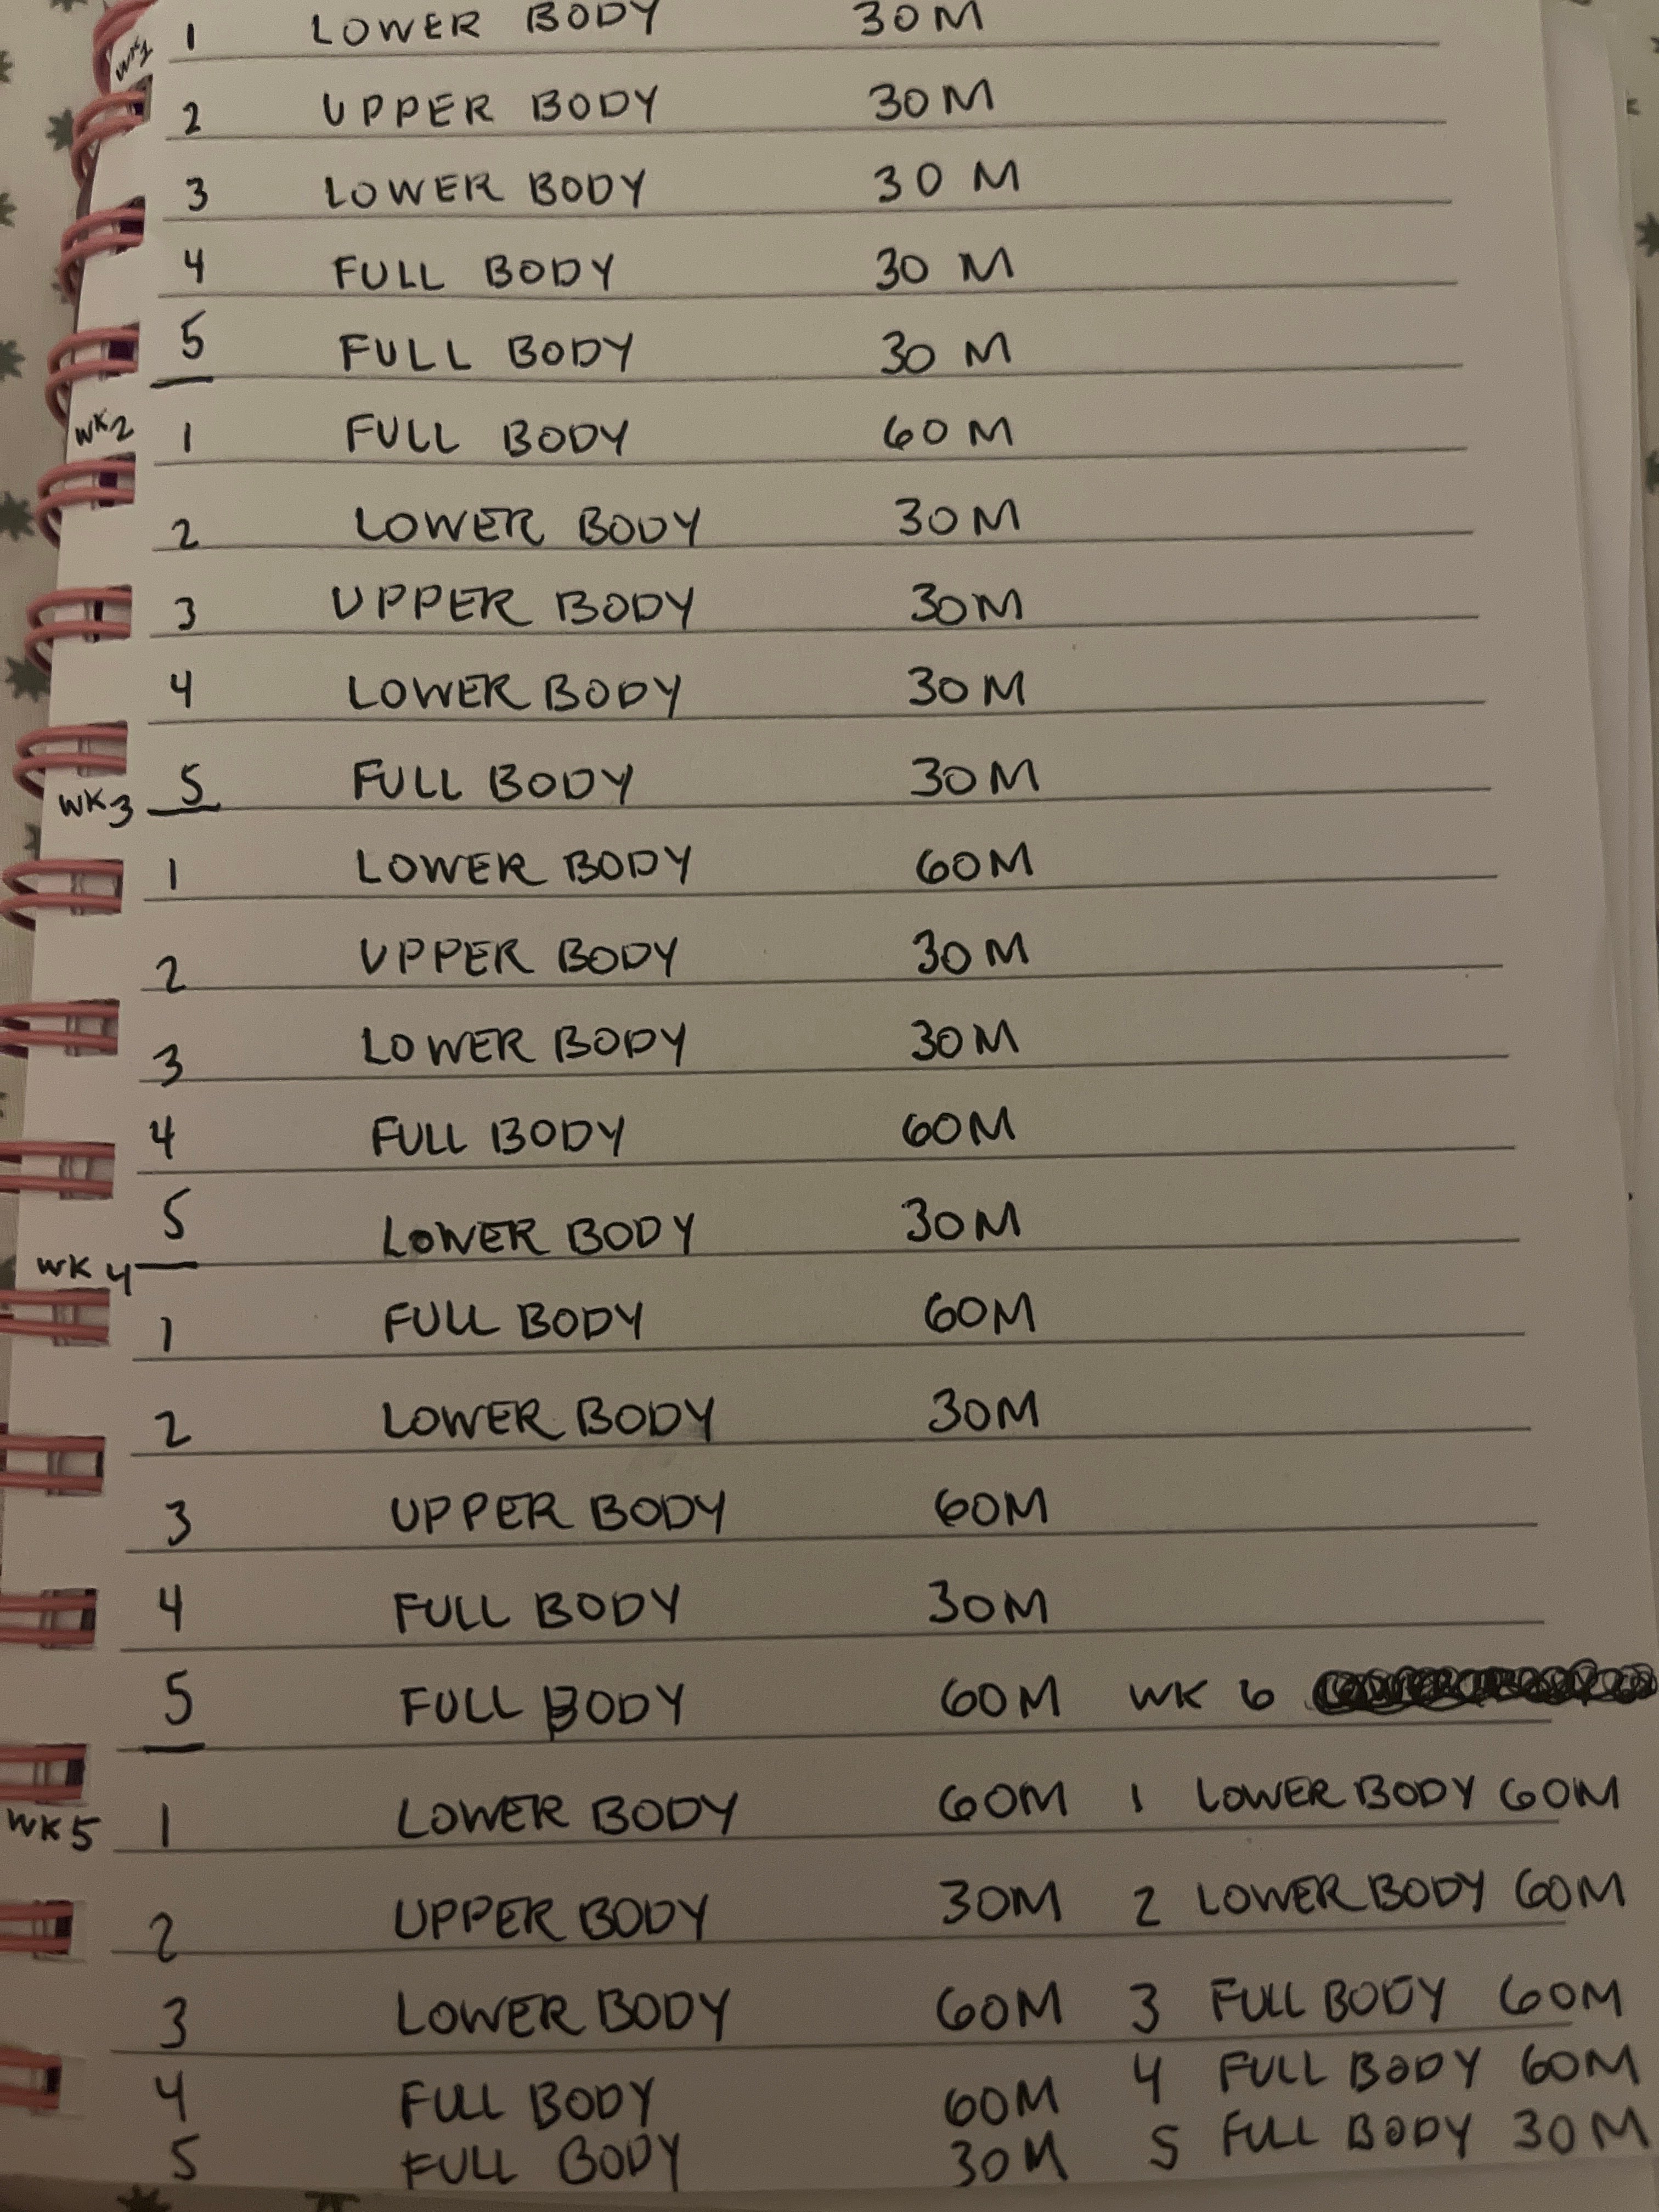 WK1 1 LOWER BODY 30M
2 UPPER BODY 30M
3 LOWER BODY 30 M
4 FULL BODY 30 M
5 FULL BODY 30 M
WK2 1 FULL BODY 60 M
2 LOWER BODY 30M
3 UPPER BODY 30M
4 LOWER BODY 30M
5 FULL BODY 30M
WK3
1 LOWER BODY 60M
2 UPPER BODY 30M
3 LOWER BODY 30M
4 FULL BODY 60M
5 LOWER BODY 30M
WK 4
1 FULL BODY 60M
2 LOWER BODY 30M
3 UPPER BODY 60M
4 FULL BODY 30M
5 FULL BODY 60M
WK5 1 LOWER BODY 60M
2 UPPER BODY 30M
3 LOWER BODY 60M
4 FULL BODY 60M
5 FULL BODY 30M
WK 6
1 LOWER BODY 60M
2 LOWER BODY 60M
3 FULL BODY 60M
4 FULL BODY 60M
5 FULL BODY 30M